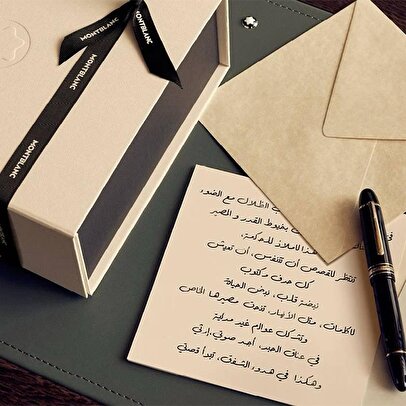 MONTBLANC
MONTBLANC
MONTBLANC
MONTBLANC
الظلال مع الضوء
بخيوط القدر و الصبر
هكذا الملاذ للحكمة,
تنتظر القصص أن تتنفس, أن تعيش
كل حرف مكتوب
نبضة قلب, نبض الحياة
الكلمات, مثل الأنهار, تنحت مصيرها الخاص
وتشكل عوالم غير مرئية
في عناق الحبر, أجد صوتي, إرثي
وهكذا في هدوء الشفق, تبدأ قصتي